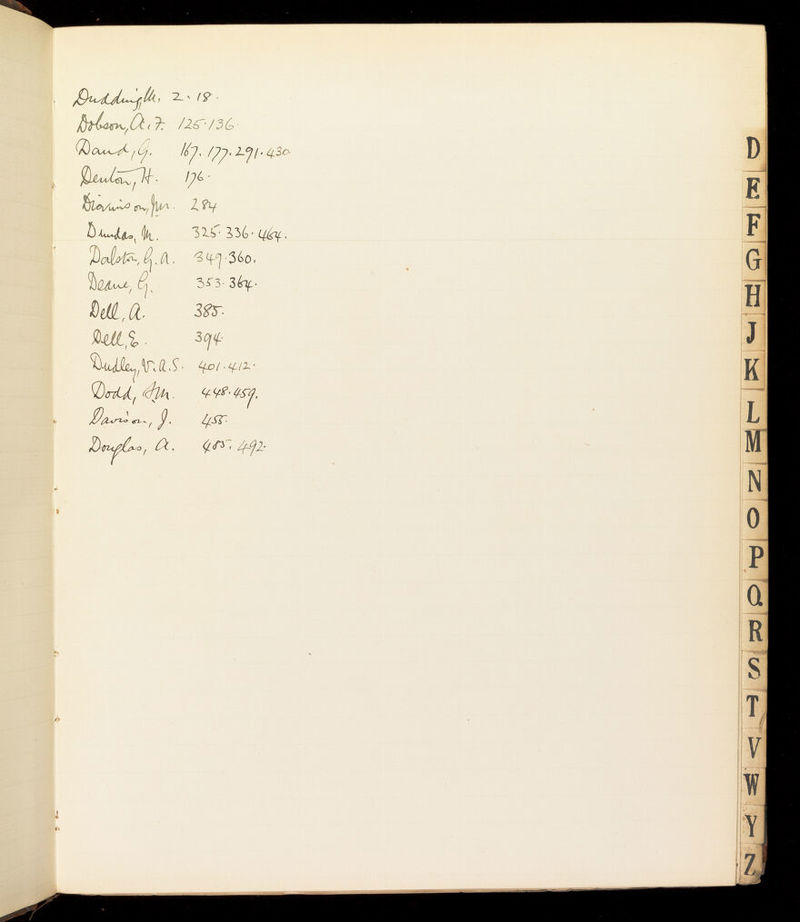 Dudding, M. 2. 18.
Dobson, A. F. 125. 136.
Daud, G. 167. 177. 291. 430
Denton, H. 176.
284
Dundas, M. 325. 336. 464.
Dalston, G. A. 349. 360.
Deane, G. 353. 364.
Dell, A. 385.
Dell, E. 394.
Dudley, V. A. S. 401. 412.
Dodd, M. 448. 459.
Davison, J. 455.
Douglas, A. 485. 492.
D
E
F
G
H
J
K
L
M
N
O
P
Q
R
S
T
V
W
Y
Z